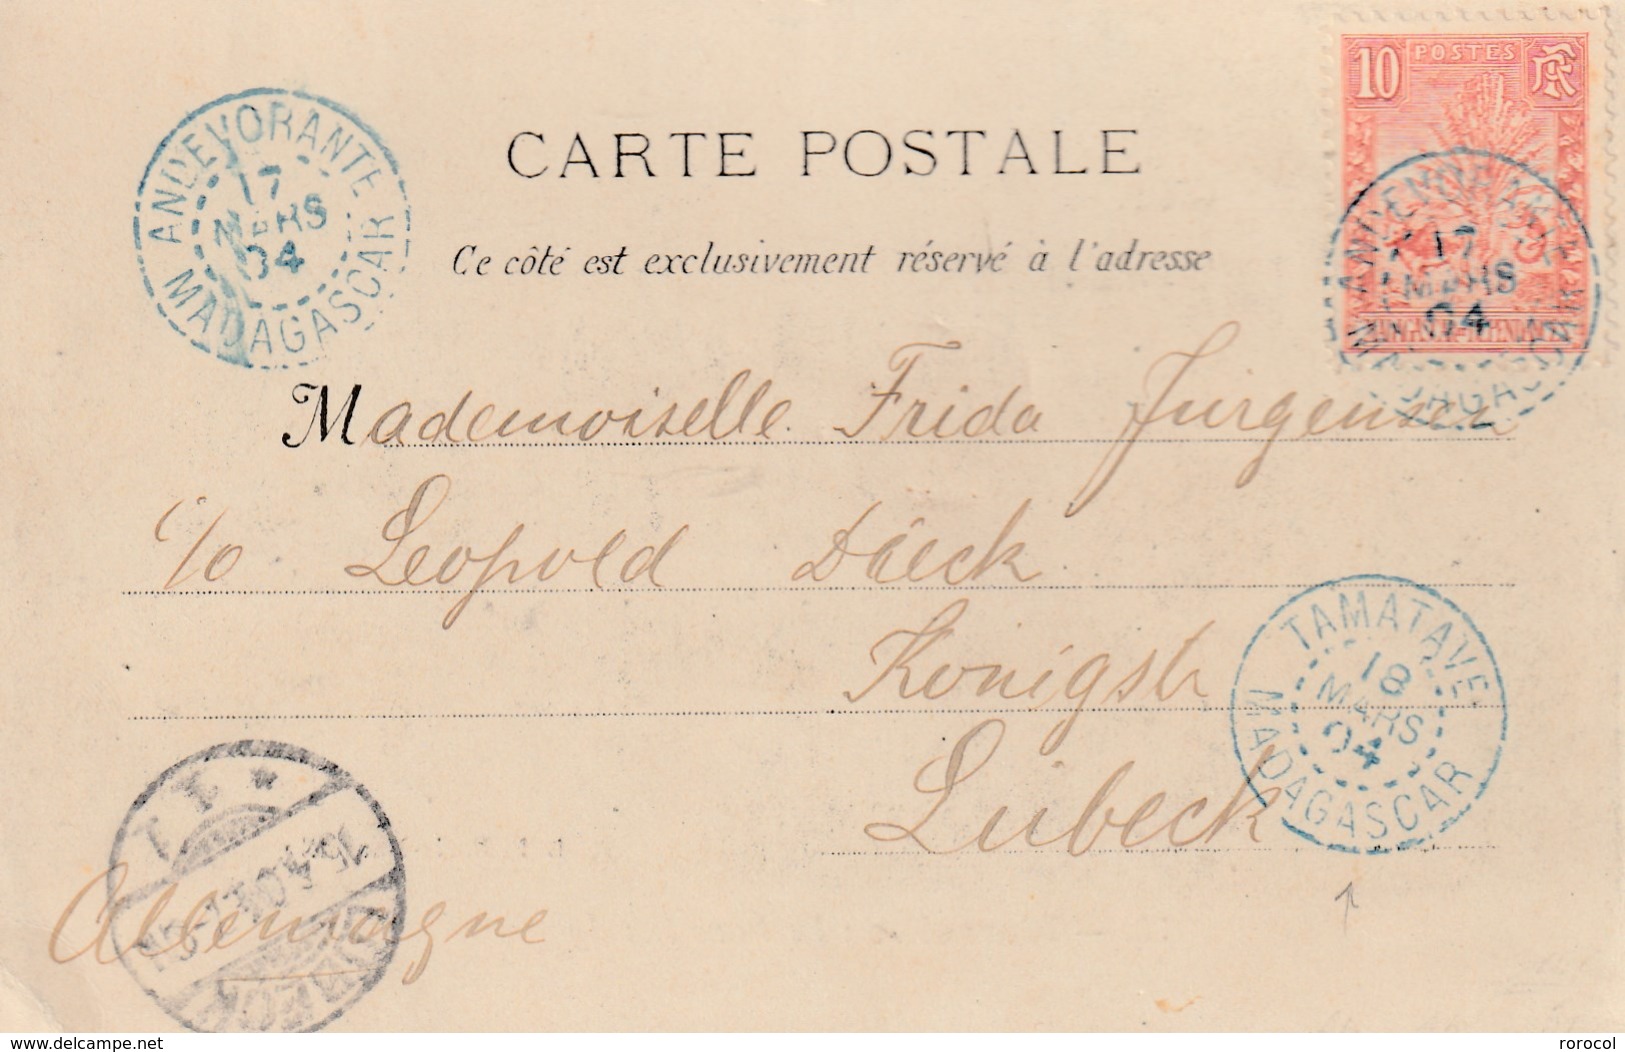 10 POSTES RF
ANDEVORANTE
17
MARS
04
MADAGASCAR
CARTE POSTALE
Ce côté est exclusivement réservé à l'adresse
ANDEVORANTE
17
MARS
04
MADAGASCAR
Mademoiselle Frida Jürgensen
c/o Leopold Dieck
Königstr
Lübeck
TAMATAVE
18
MARS
04
MADAGASCAR
Allemagne
www.delcampe.net
rorocol